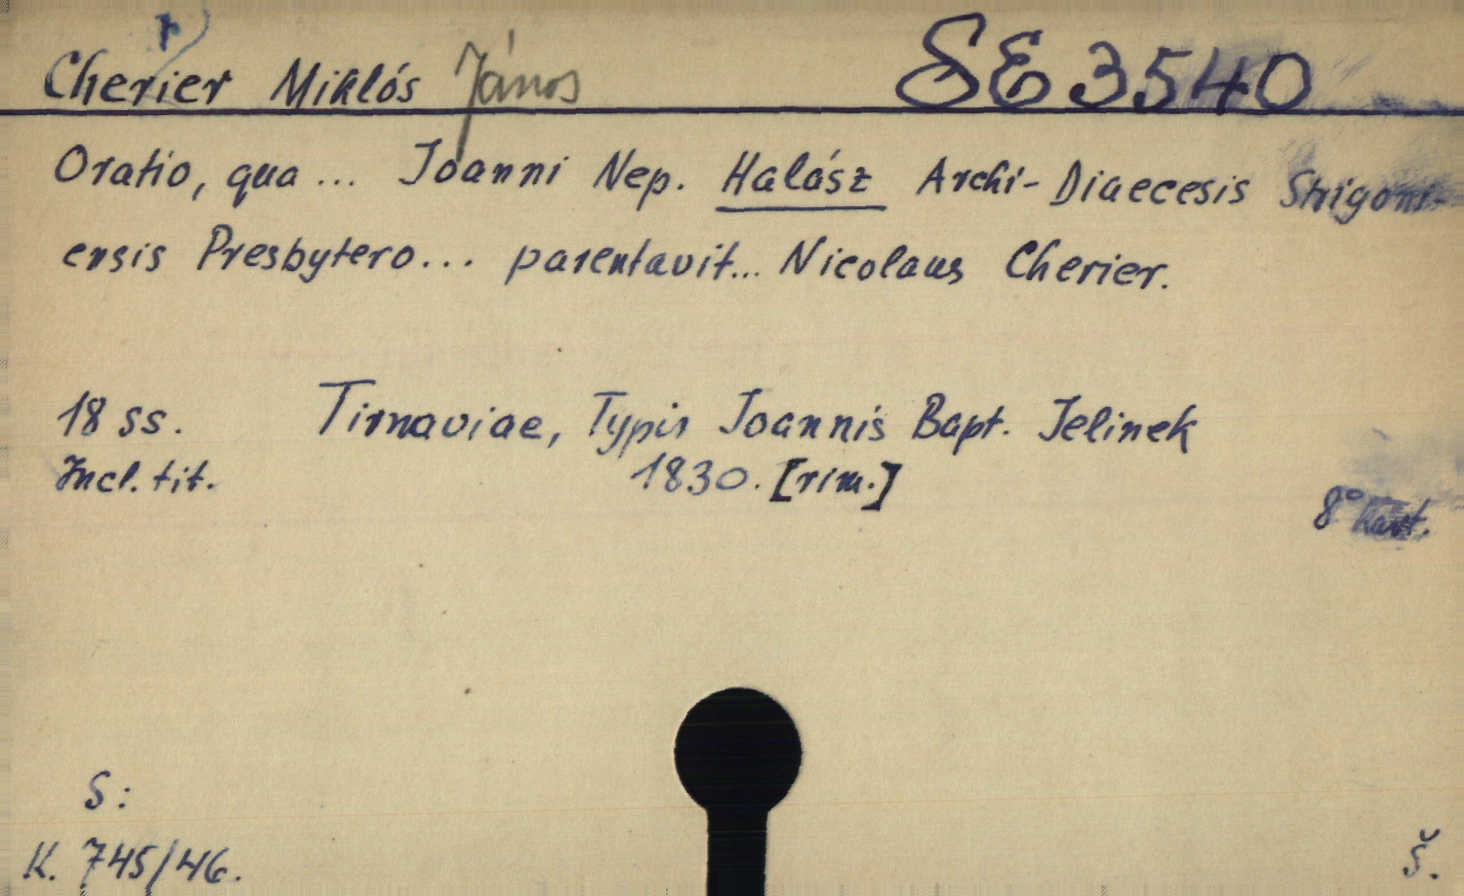 Cherier Miklós János SE 3540
r
Oratio, qua ... Joanni Nep. Halász Archi-Diaecesis Strigoni-
ensis Presbytero... parentavit... Nicolaus Cherier.
18 ss. Tirnaviae, Typis Joannis Bapt. Jelinek
Incl. tit. 1830. [rim.]
8° kart.
S:
K. 745/46. Š.